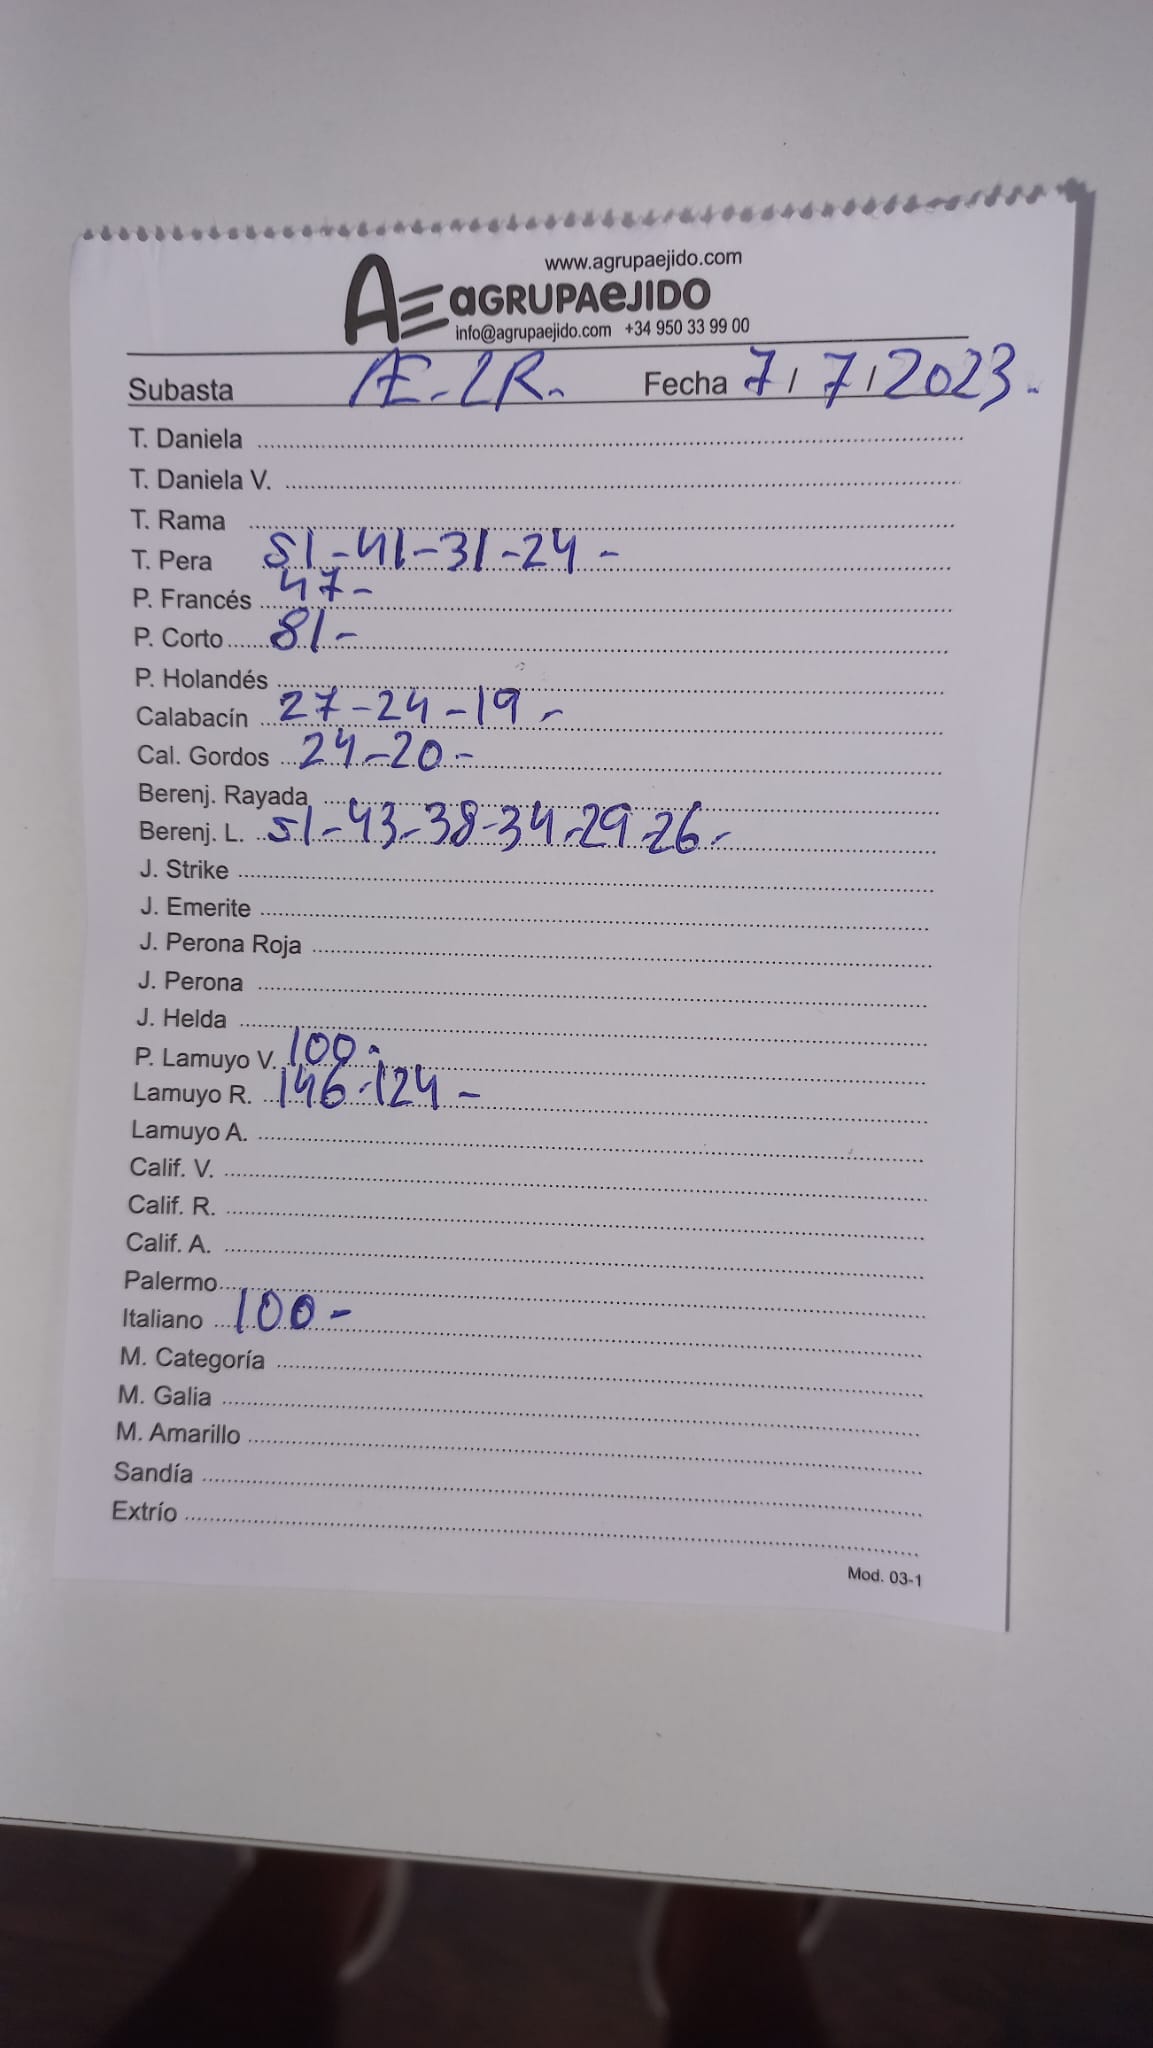 www.agrupaejido.com
AE aGRUPAeJIDO
info@agrupaejido.com +34 950 33 99 00
Subasta AE-LR. Fecha 7/7/2023.
T. Daniela
T. Daniela V.
T. Rama
T. Pera 51-41-31-24-
P. Francés 47-
P. Corto 81-
P. Holandés
Calabacín 27-24-19-
Cal. Gordos 24-20-
Berenj. Rayada
Berenj. L. 51-43-38-34-29-26-
J. Strike
J. Emerite
J. Perona Roja
J. Perona
J. Helda
P. Lamuyo V. 100-
Lamuyo R. 146-124-
Lamuyo A.
Calif. V.
Calif. R.
Calif. A.
Palermo
Italiano 100-
M. Categoría
M. Galia
M. Amarillo
Sandía
Extrío
Mod. 03-1